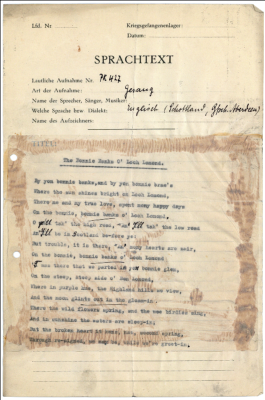 Lfd. Nr
Kriegsgefangenenlager:
Datum:
SPRACHTEXT
Lautliche Aufnahme Nr. PK 427
Art der Aufnahme: Gesang
Name der Sprecher, Sänger, Musiker
Welche Sprache bzw Dialekt: Englisch (Schottland, Aberdeen)
Name des Aufzeichners:
The Bonnie Banks O' Loch Lomond.
By yon bonnie banks, and by yon bonnie brae's
Where the sun shines bright on Loch Lomond.
Where me and my true love, spent many happy days
On the bonnie, bonnie banks o' Loch Lomond.
tak' the high road, an' I'll tak' the low road
I'll be in Scotland before ye:
But trouble, it is there, an' many hearts are sair,
On the bonnie, bonnie banks o' Loch Lomond
was there that we parted in yon bonnie glen,
On the steep, steep side o' Ben Lomond,
Where in purple hue, the Highland hills we view,
And the moon glints out in the gloamin'.
There the wild flowers spring, and the wee birdies sing,
And in sunshine the waters are sleepin';
But the broken heart it kens, nae, second spring,